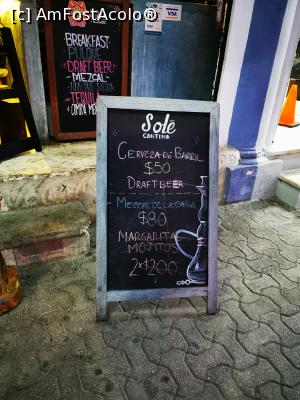 [c] AmFostAcolo®
VISA
BREAKFAST
PULQUE
DRAFT BEER
-MEZCAL-
TEQUILA
COMIDA MEX
Solé
CANTINA
CERVEZA DE BARRIL
$50
DRAFT BEER
MEZCAL DE LA CASA
$80
MARGARITAS
MOJITOS
2x$200